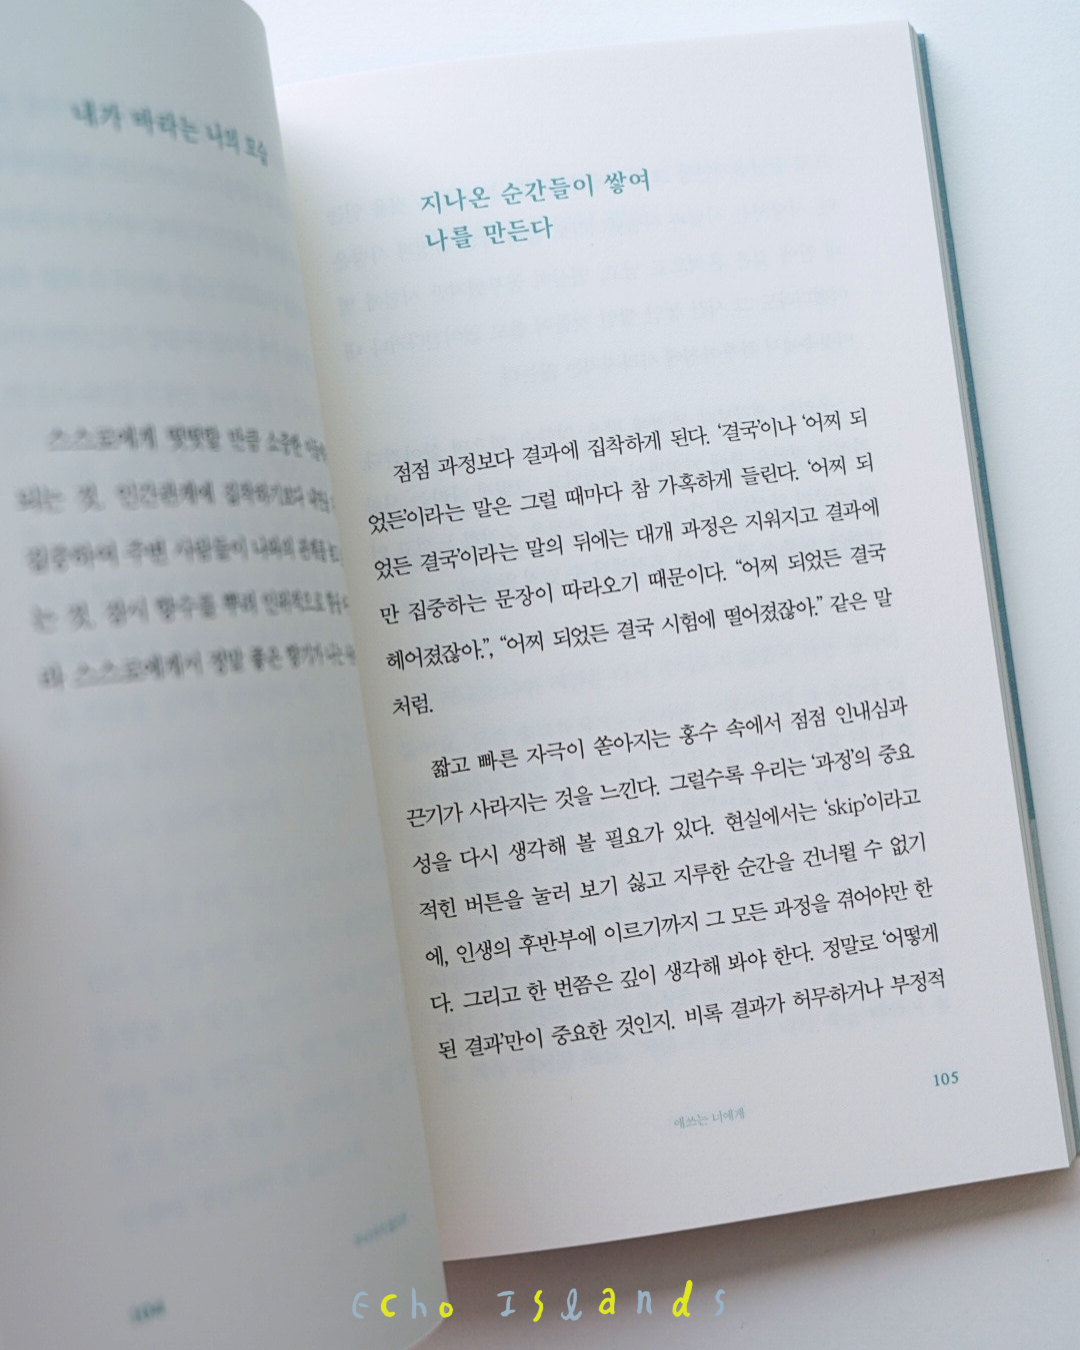 내가 바라는 나의 모습
스스로에게 떳떳할 만큼 소중한
되는 것. 인간관계에 집착하기보다
집중하여 주변 사람들이 나와의
는 것. 잠시 향수를 뿌려 인위적으로
라 스스로에게서 정말 좋은 향기가 나는
지나온 순간들이 쌓여
나를 만든다
점점 과정보다 결과에 집착하게 된다. ‘결국’이나 ‘어찌 되
었든’이라는 말은 그럴 때마다 참 가혹하게 들린다. ‘어찌 되
었든 결국’이라는 말의 뒤에는 대개 과정은 지워지고 결과에
만 집중하는 문장이 따라오기 때문이다. “어찌 되었든 결국
헤어졌잖아.”, “어찌 되었든 결국 시험에 떨어졌잖아.” 같은 말
처럼.
짧고 빠른 자극이 쏟아지는 홍수 속에서 점점 인내심과
끈기가 사라지는 것을 느낀다. 그럴수록 우리는 ‘과정’의 중요
성을 다시 생각해 볼 필요가 있다. 현실에서는 ‘skip’이라고
적힌 버튼을 눌러 보기 싫고 지루한 순간을 건너뛸 수 없기
에, 인생의 후반부에 이르기까지 그 모든 과정을 겪어야만 한
다. 그리고 한 번쯤은 깊이 생각해 봐야 한다. 정말로 ‘어떻게
된 결과’만이 중요한 것인지. 비록 결과가 허무하거나 부정적
105
애쓰는 너에게
Echo Islands